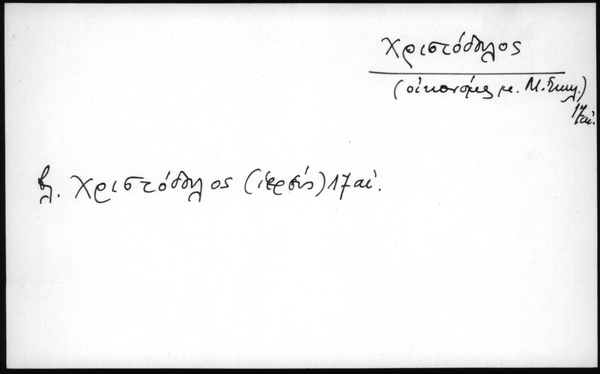 Χριστόδουλος
(οἰκονόμος μ. Μ. Ἐκκλ.)
17 αἰ.
βλ. Χριστόδουλος (ἱερεύς) 17 αἰ.